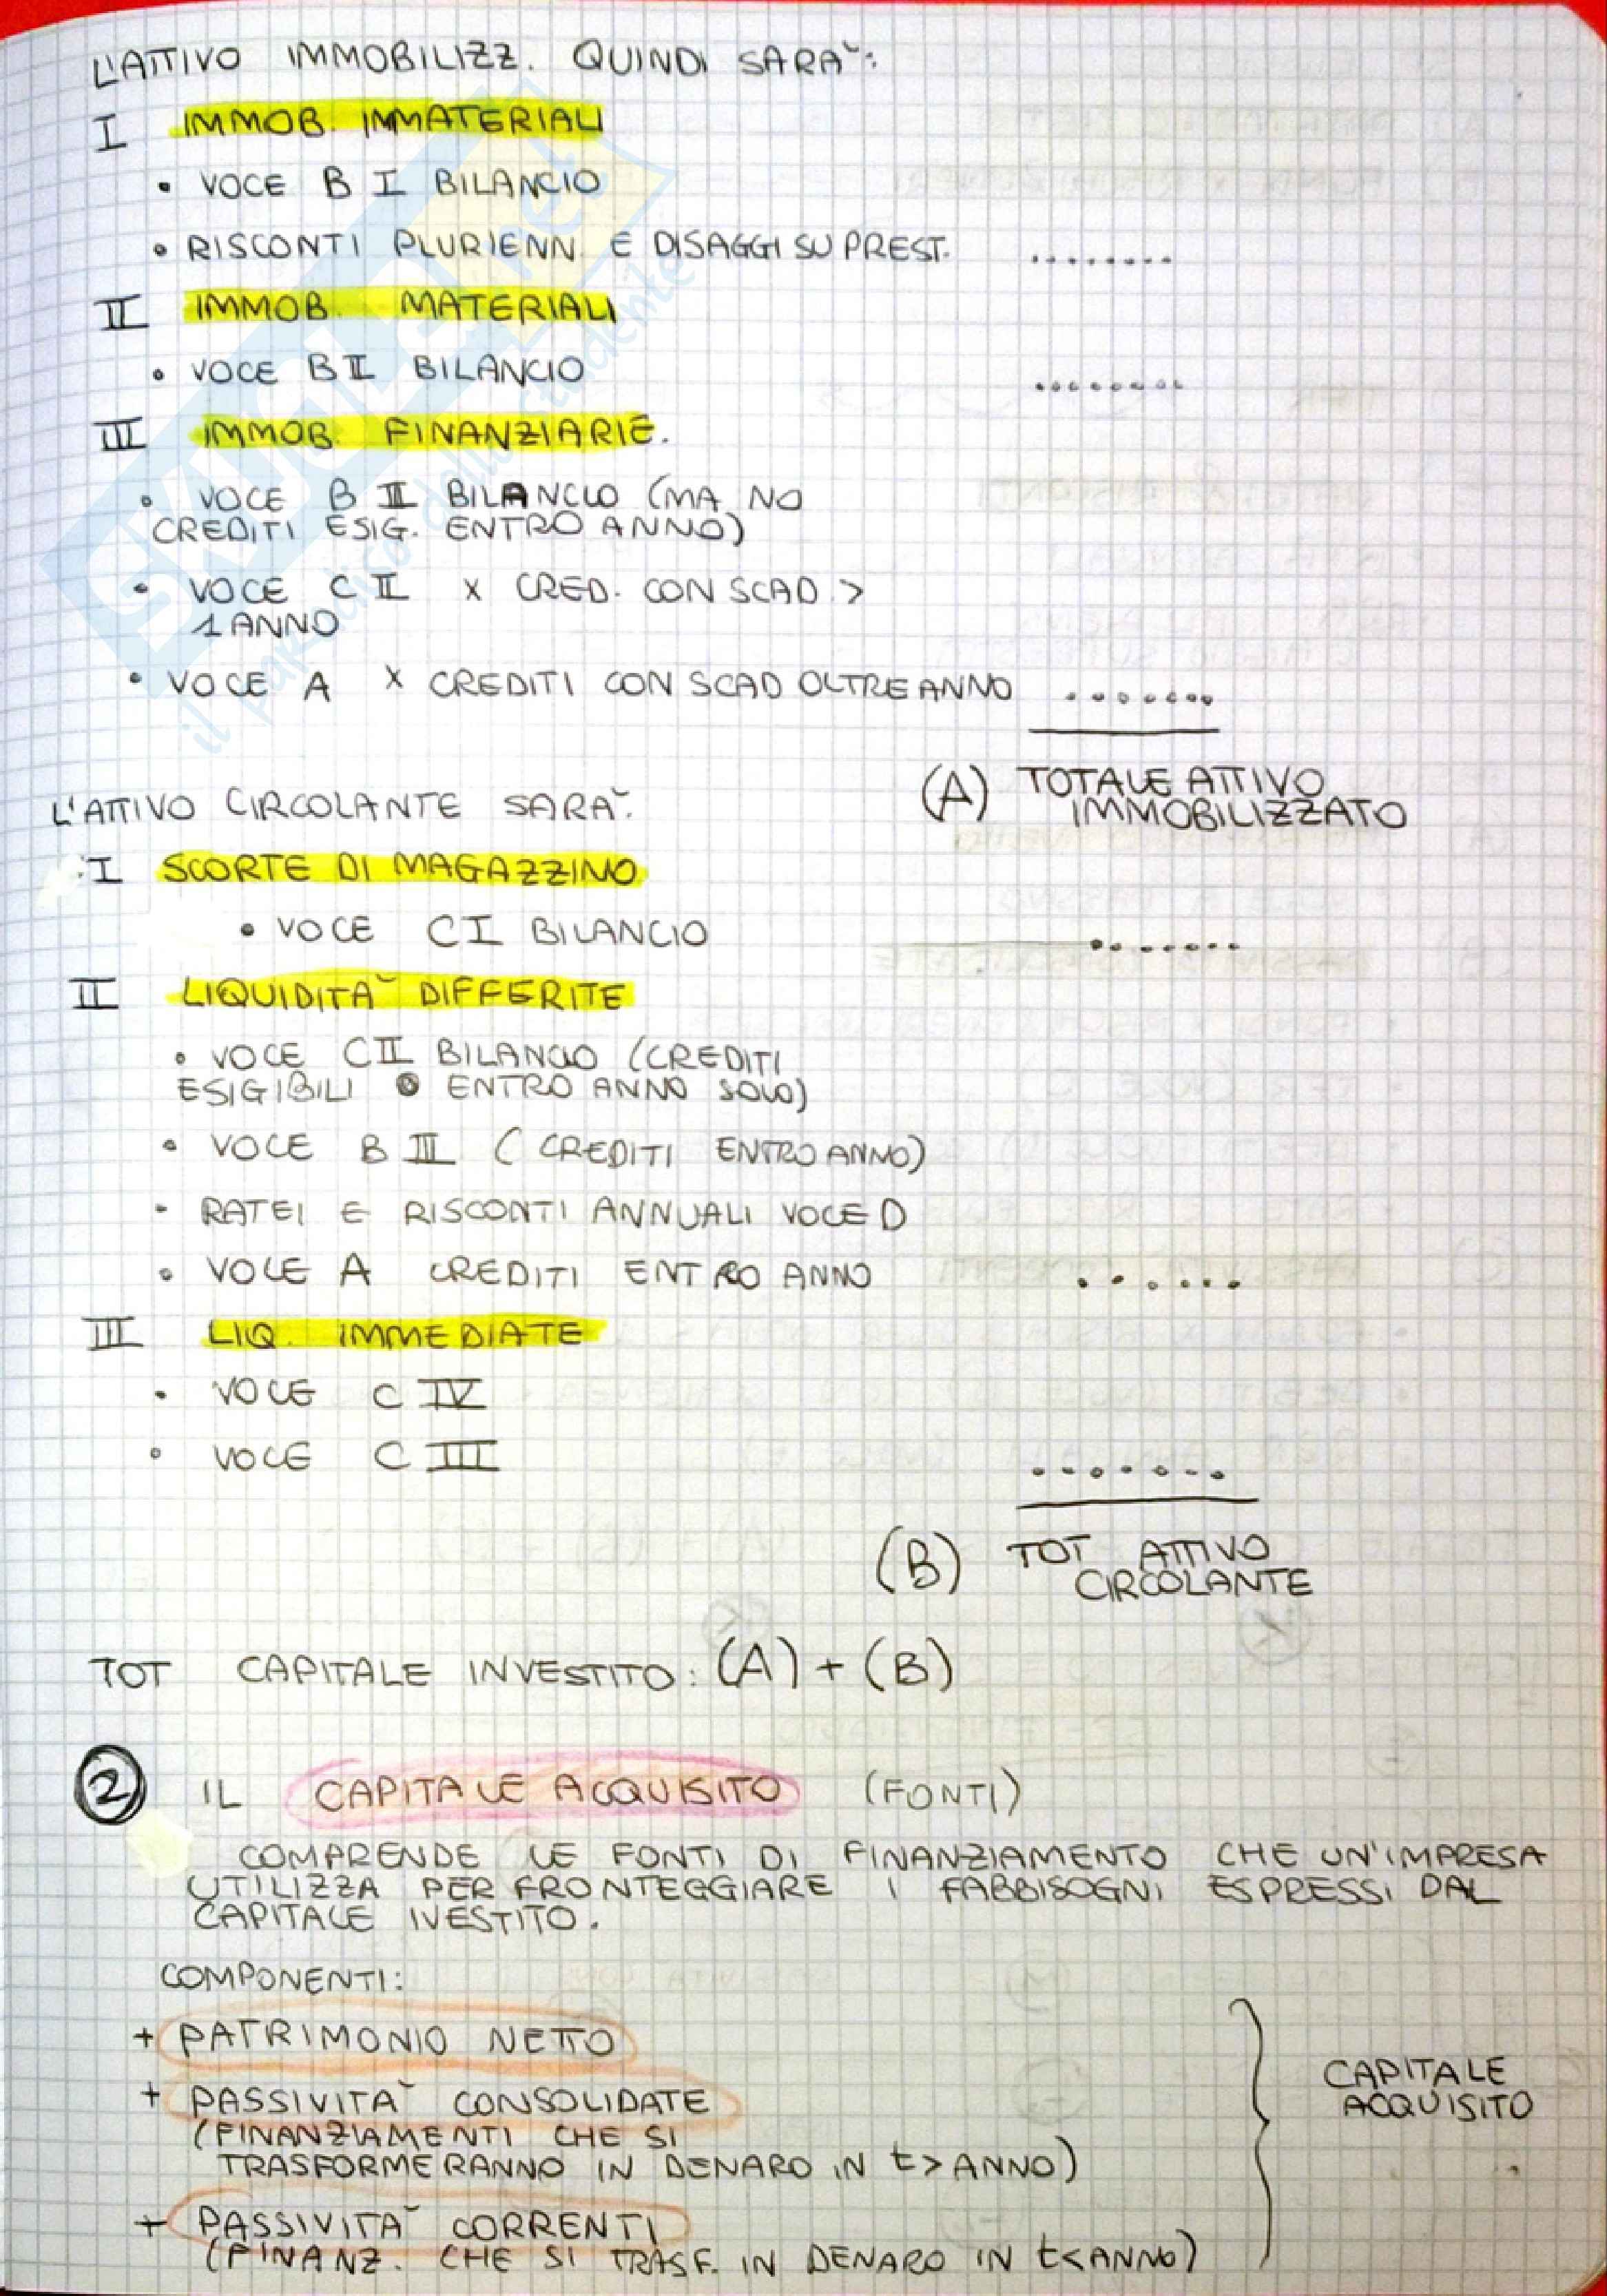 L'ATTIVO IMMOBILIZZ. QUINDI SARA':
I IMMOB. IMMATERIALI
• VOCE B I BILANCIO
• RISCONTI PLURIENN. E DISAGGI SU PREST. ........
II IMMOB. MATERIALI
• VOCE B II BILANCIO ........
III IMMOB. FINANZIARIE.
• VOCE B II BILANCIO (MA NO
CREDITI ESIG. ENTRO ANNO)
• VOCE C II X CRED. CON SCAD. >
1 ANNO
• VOCE A X CREDITI CON SCAD OLTRE ANNO .......
(A) TOTALE ATTIVO
IMMOBILIZZATO
L'ATTIVO CIRCOLANTE SARA':
I SCORTE DI MAGAZZINO
• VOCE C I BILANCIO .......
II LIQUIDITA' DIFFERITE
• VOCE C II BILANCIO (CREDITI
ESIGIBILI ENTRO ANNO SOLO)
• VOCE B III (CREDITI ENTRO ANNO)
• RATEI E RISCONTI ANNUALI VOCE D
• VOCE A CREDITI ENTRO ANNO ......
III LIQ. IMMEDIATE
• VOCE C IV
• VOCE C III
.......
(B) TOT ATTIVO
CIRCOLANTE
TOT CAPITALE INVESTITO: (A) + (B)
2 IL CAPITALE ACQUISITO (FONTI)
COMPRENDE LE FONTI DI FINANZIAMENTO CHE UN'IMPRESA
UTILIZZA PER FRONTEGGIARE I FABBISOGNI ESPRESSI DAL
CAPITALE IVESTITO.
COMPONENTI:
+ PATRIMONIO NETTO
+ PASSIVITA' CONSOLIDATE
(FINANZIAMENTI CHE SI
TRASFORMERANNO IN DENARO IN t > ANNO)
+ PASSIVITA' CORRENTI
(FINANZ. CHE SI TRASF. IN DENARO IN t < ANNO)
CAPITALE
ACQUISITO
SKUOLA.net
il paradiso dello studente